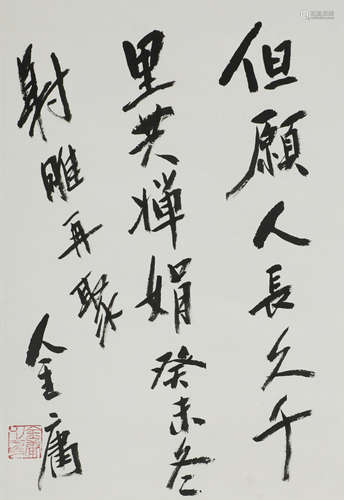 但願人長久千
里共嬋娟 癸未冬
射雕再聚
金庸